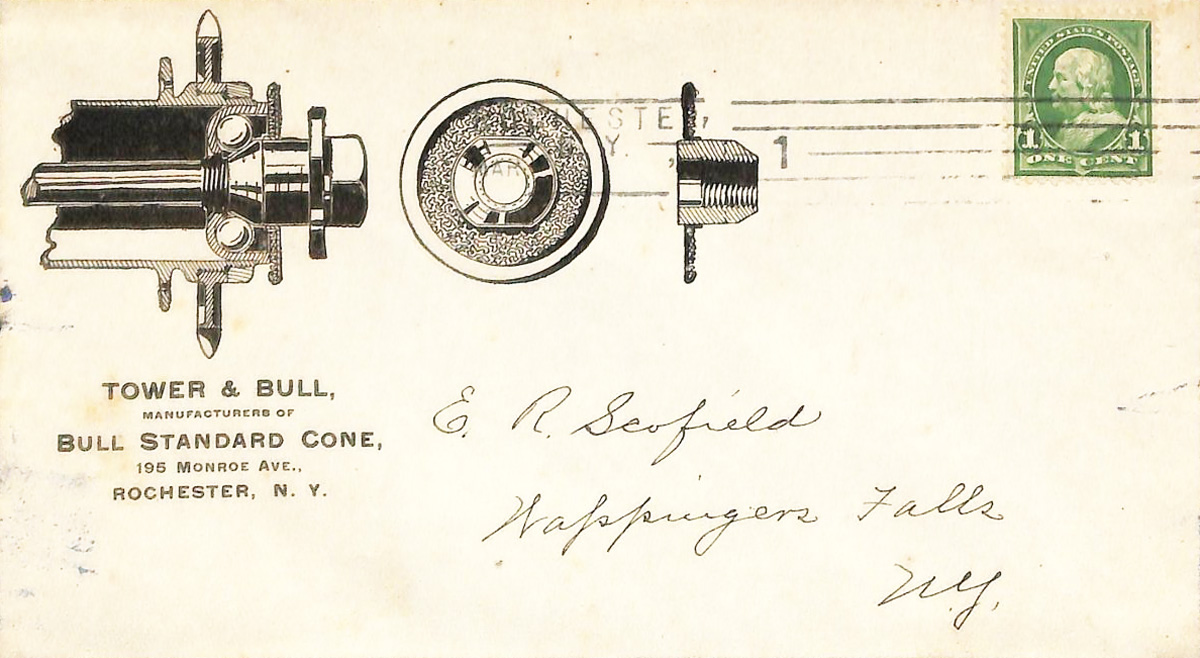 UNITED STATES POSTAGE
1 1
ONE CENT
1
TOWER & BULL,
MANUFACTURERS OF
BULL STANDARD CONE,
195 MONROE AVE.,
ROCHESTER, N. Y.
E. R. Scofield
Wappingers Falls
N.Y.